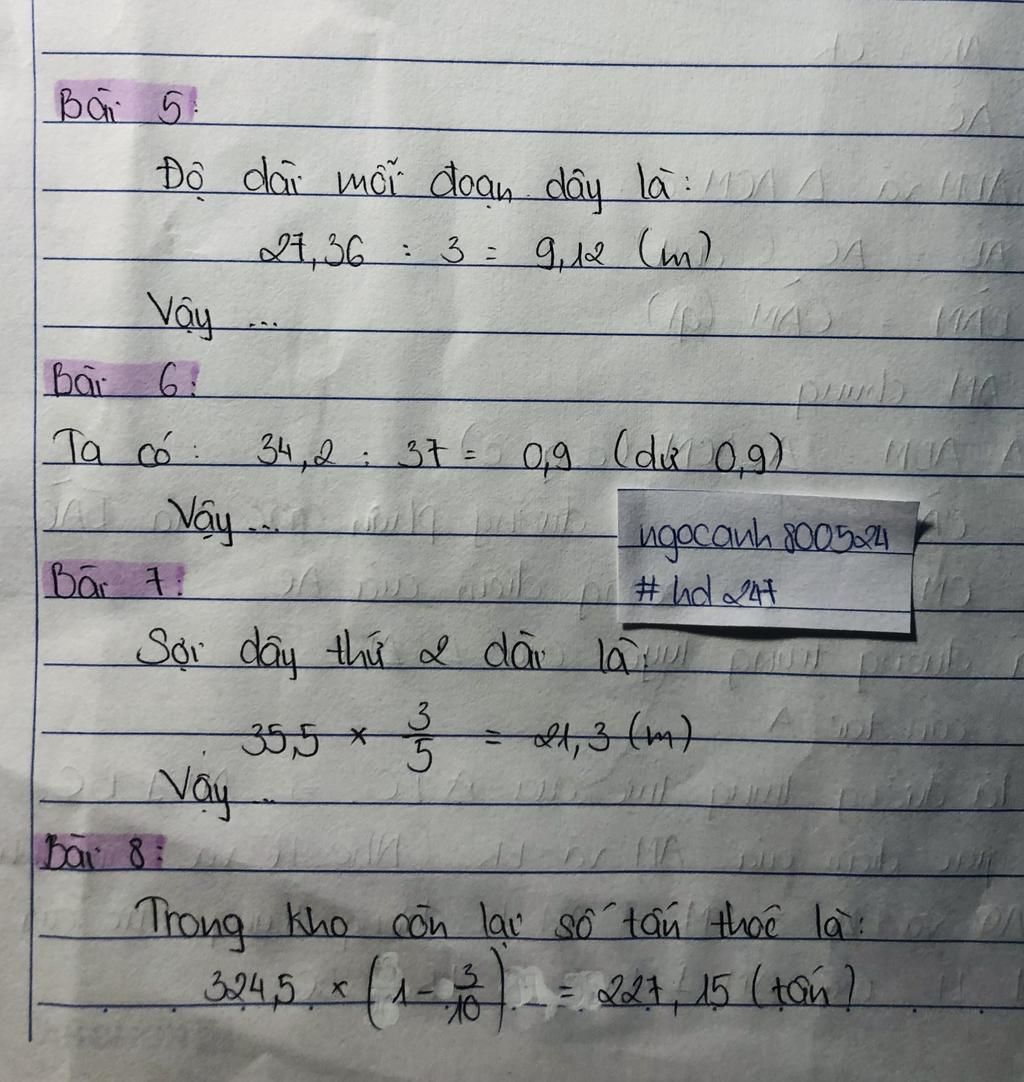 Bài 5:
Độ dài mỗi đoạn dây là:
27,36 : 3 = 9,12 (m)
Vậy ...
Bài 6:
Ta có: 34,2 : 37 = 0,9 (dư 0,9)
Vậy ...
ngocanh800524
# hd 247
Bài 7:
Sợi dây thứ 2 dài là:
35,5 × 3/5 = 21,3 (m)
Vậy ..
Bài 8:
Trong kho còn lại số tấn thóc là:
324,5 × (1 - 3/10) = 227,15 (tấn)